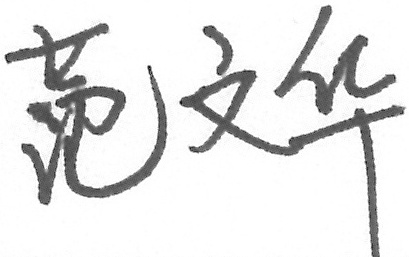 范文华